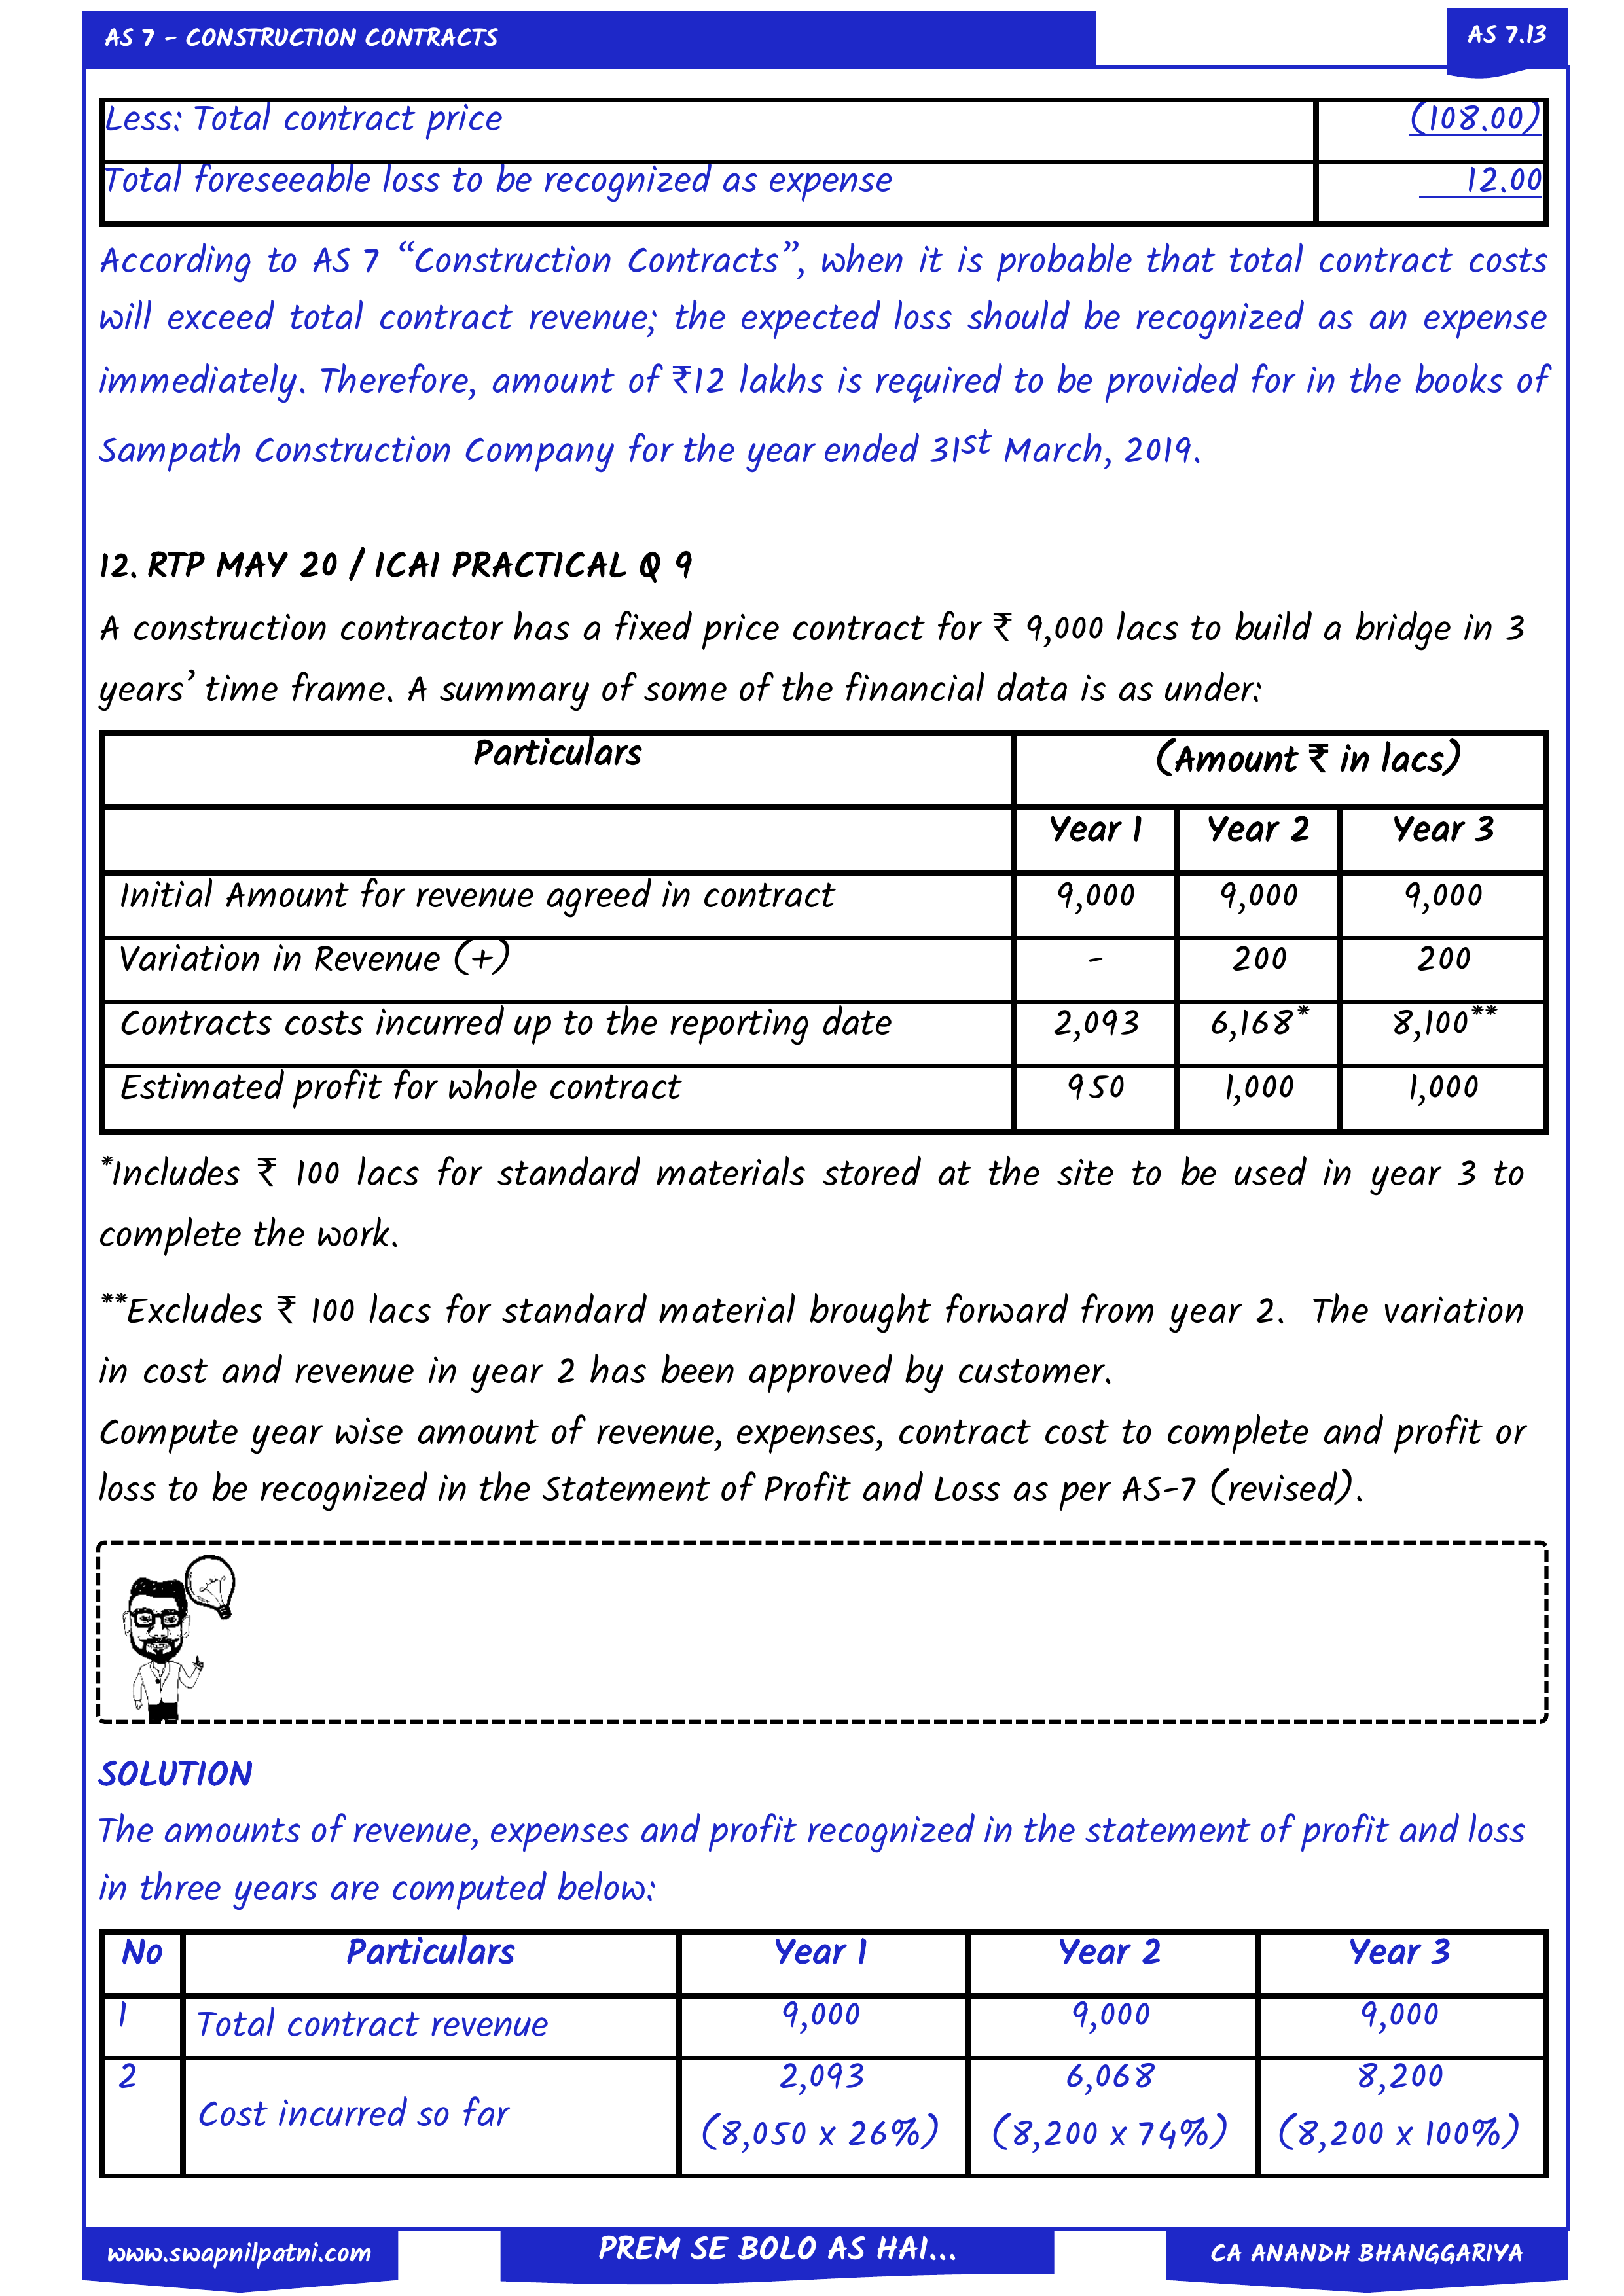 AS 7 - CONSTRUCTION CONTRACTS
AS 7.13
Less: Total contract price (108.00)
Total foreseeable loss to be recognized as expense 12.00
According to AS 7 “Construction Contracts”, when it is probable that total contract costs
will exceed total contract revenue; the expected loss should be recognized as an expense
immediately. Therefore, amount of ₹12 lakhs is required to be provided for in the books of
Sampath Construction Company for the year ended 31st March, 2019.
12. RTP MAY 20 / ICAI PRACTICAL Q 9
A construction contractor has a fixed price contract for ₹ 9,000 lacs to build a bridge in 3
years’ time frame. A summary of some of the financial data is as under:
Particulars (Amount ₹ in lacs)
Year 1 Year 2 Year 3
Initial Amount for revenue agreed in contract 9,000 9,000 9,000
Variation in Revenue (+) - 200 200
Contracts costs incurred up to the reporting date 2,093 6,168* 8,100**
Estimated profit for whole contract 950 1,000 1,000
*Includes ₹ 100 lacs for standard materials stored at the site to be used in year 3 to
complete the work.
**Excludes ₹ 100 lacs for standard material brought forward from year 2. The variation
in cost and revenue in year 2 has been approved by customer.
Compute year wise amount of revenue, expenses, contract cost to complete and profit or
loss to be recognized in the Statement of Profit and Loss as per AS-7 (revised).
SOLUTION
The amounts of revenue, expenses and profit recognized in the statement of profit and loss
in three years are computed below:
No Particulars Year 1 Year 2 Year 3
1 Total contract revenue 9,000 9,000 9,000
2 Cost incurred so far 2,093 6,068 8,200
(8,050 x 26%) (8,200 x 74%) (8,200 x 100%)
www.swapnilpatni.com
PREM SE BOLO AS HAI...
CA ANANDH BHANGGARIYA